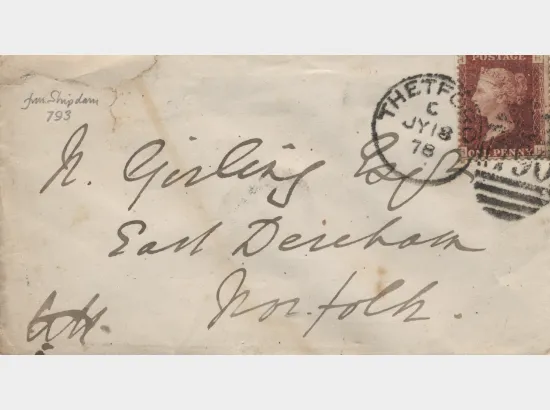 POSTAGE
ONE PENNY
THETFORD
C
JY 18
78
from Shipdam
793
N. Girling Esq
East Dereham
Norfolk.